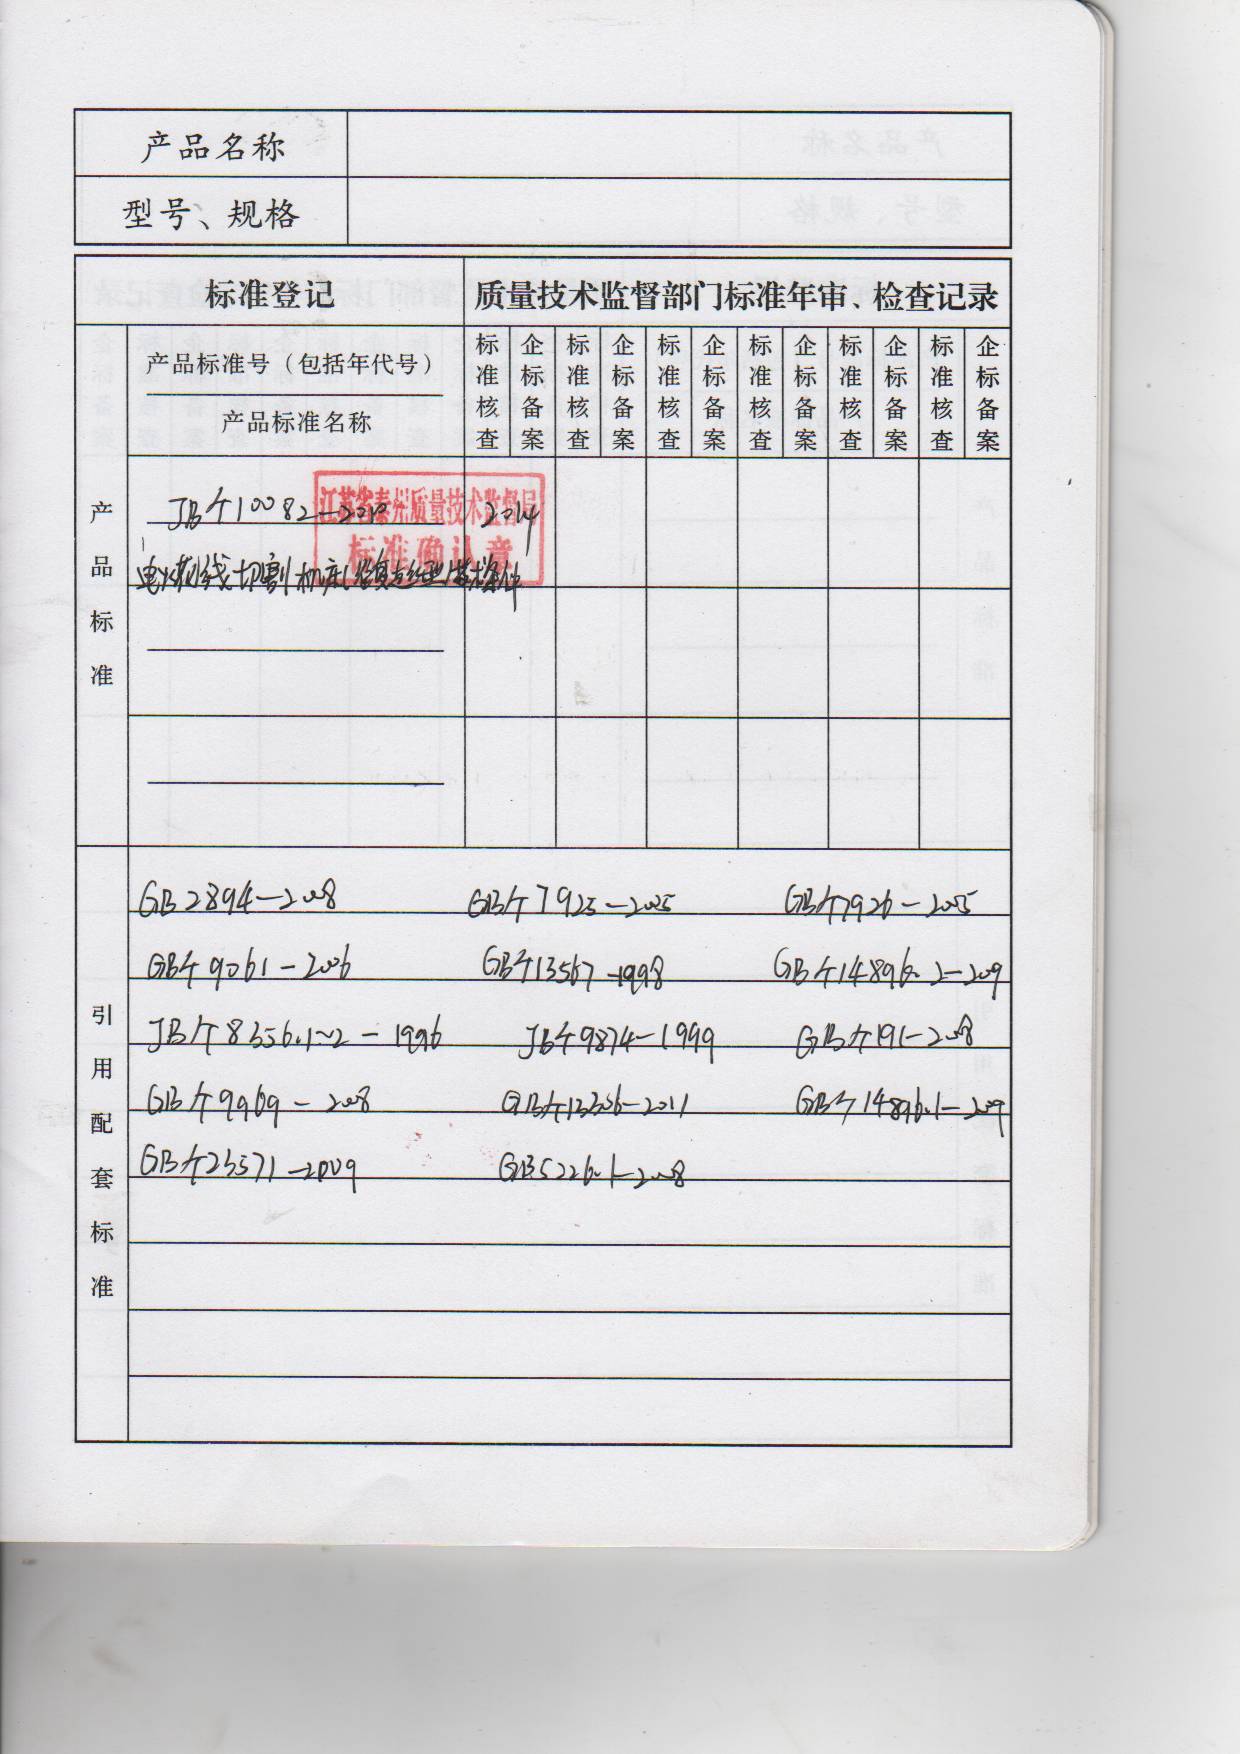 产品名称
型号、规格
标准登记 质量技术监督部门标准年审、检查记录
产品标准号（包括年代号）
产品标准名称
标准核查 企标备案 标准核查 企标备案 标准核查 企标备案 标准核查 企标备案 标准核查 企标备案 标准核查 企标备案
产品标准
JB/T10082-2010 2014
江苏省泰州质量技术监督局
标准确认章
电火花线切割机床(往复走丝型)技术条件
引用配套标准
GB2894-2008 GB/T7925-2005 GB/T7926-2005
GB/T9061-2006 GB/T13567-1998 GB/T14896.2-2009
JB/T8356.1~2-1996 JB/T9874-1999 GB/T191-2008
GB/T9969-2008 GB/T13306-2011 GB/T14896.1-2009
GB/T23571-2009 GB5226.1-2008